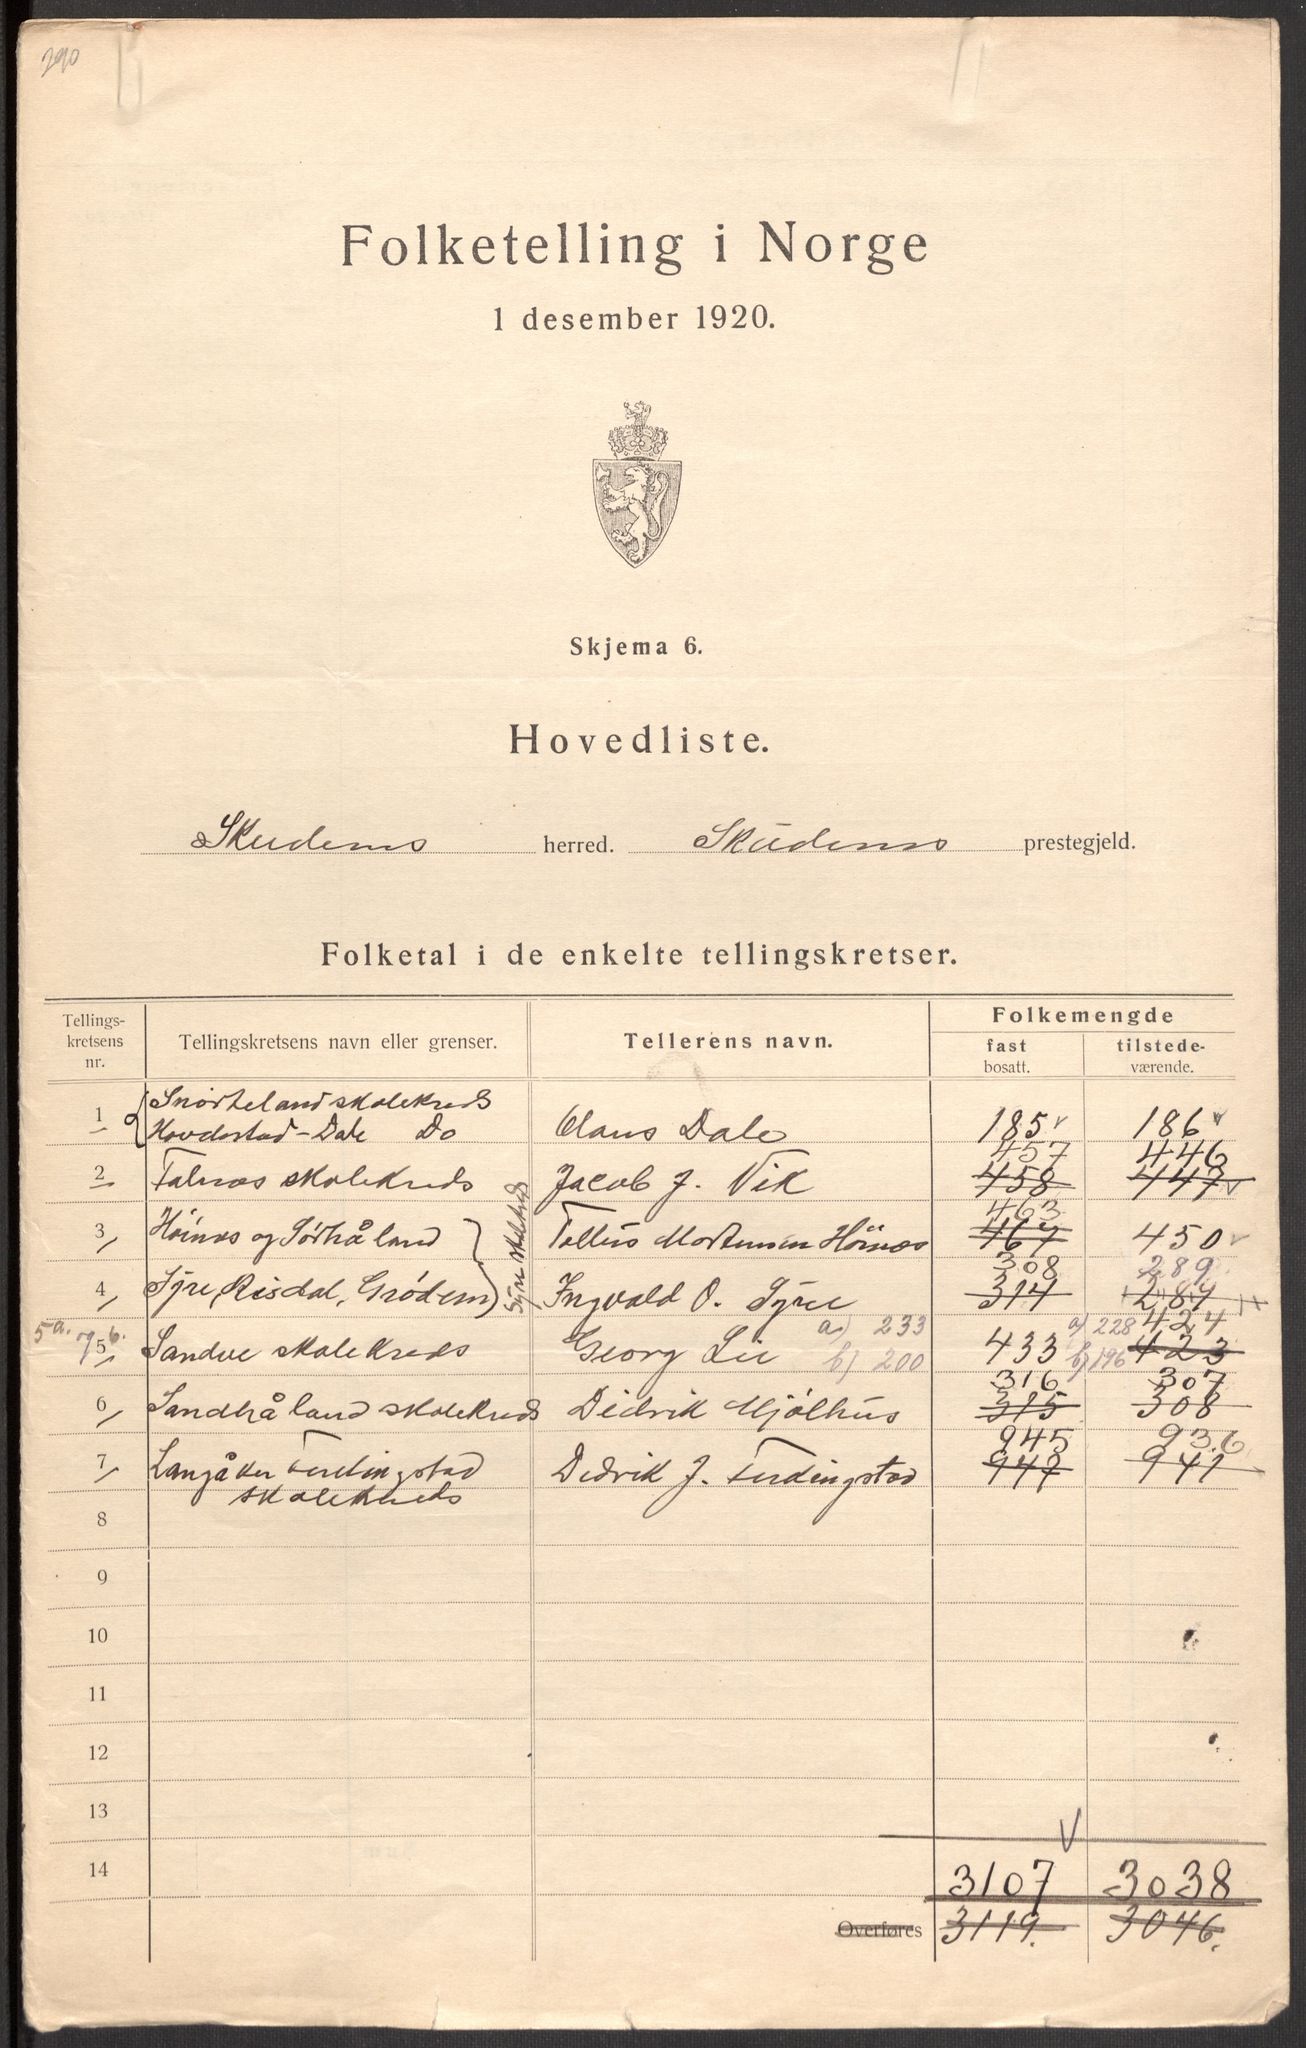 290
Folketelling i Norge
1 desember 1920.
Skjema 6.
Hovedliste.
Skudenes herred. Skudenes prestegjeld.
Folketal i de enkelte tellingskretser.
Tellings-kretsens nr. Tellingskretsens navn eller grenser. Tellerens navn. Folkemengde
fast bosatt. tilstede-værende.
Snørteland skolekreds
1 Hovdestad-Dale Do Claus Dale 185 186
457 446
2 Falnes skolekreds Jacob J. Vik 458 447
463
3 Høines og Sørhåland Syre skolekreds Tollus Mortensen Høines 467 450
308 289
4 Syre, Risdal, Grødem Ingvald O. Syre 314 289
5a. og b. a) 233 a) 228 424
5 Sandve skolekreds Georg Lie b) 200 433 b) 196 423
316 307
6 Sandhåland skolekreds Didrik Mjølhus 315 308
945 936
7 Langåker Ferdingstad Didrik J. Ferdingstad 947 941
skolekreds
8
9
10
11
12
13
14 3107 3038
Overføres 3119. 3046.